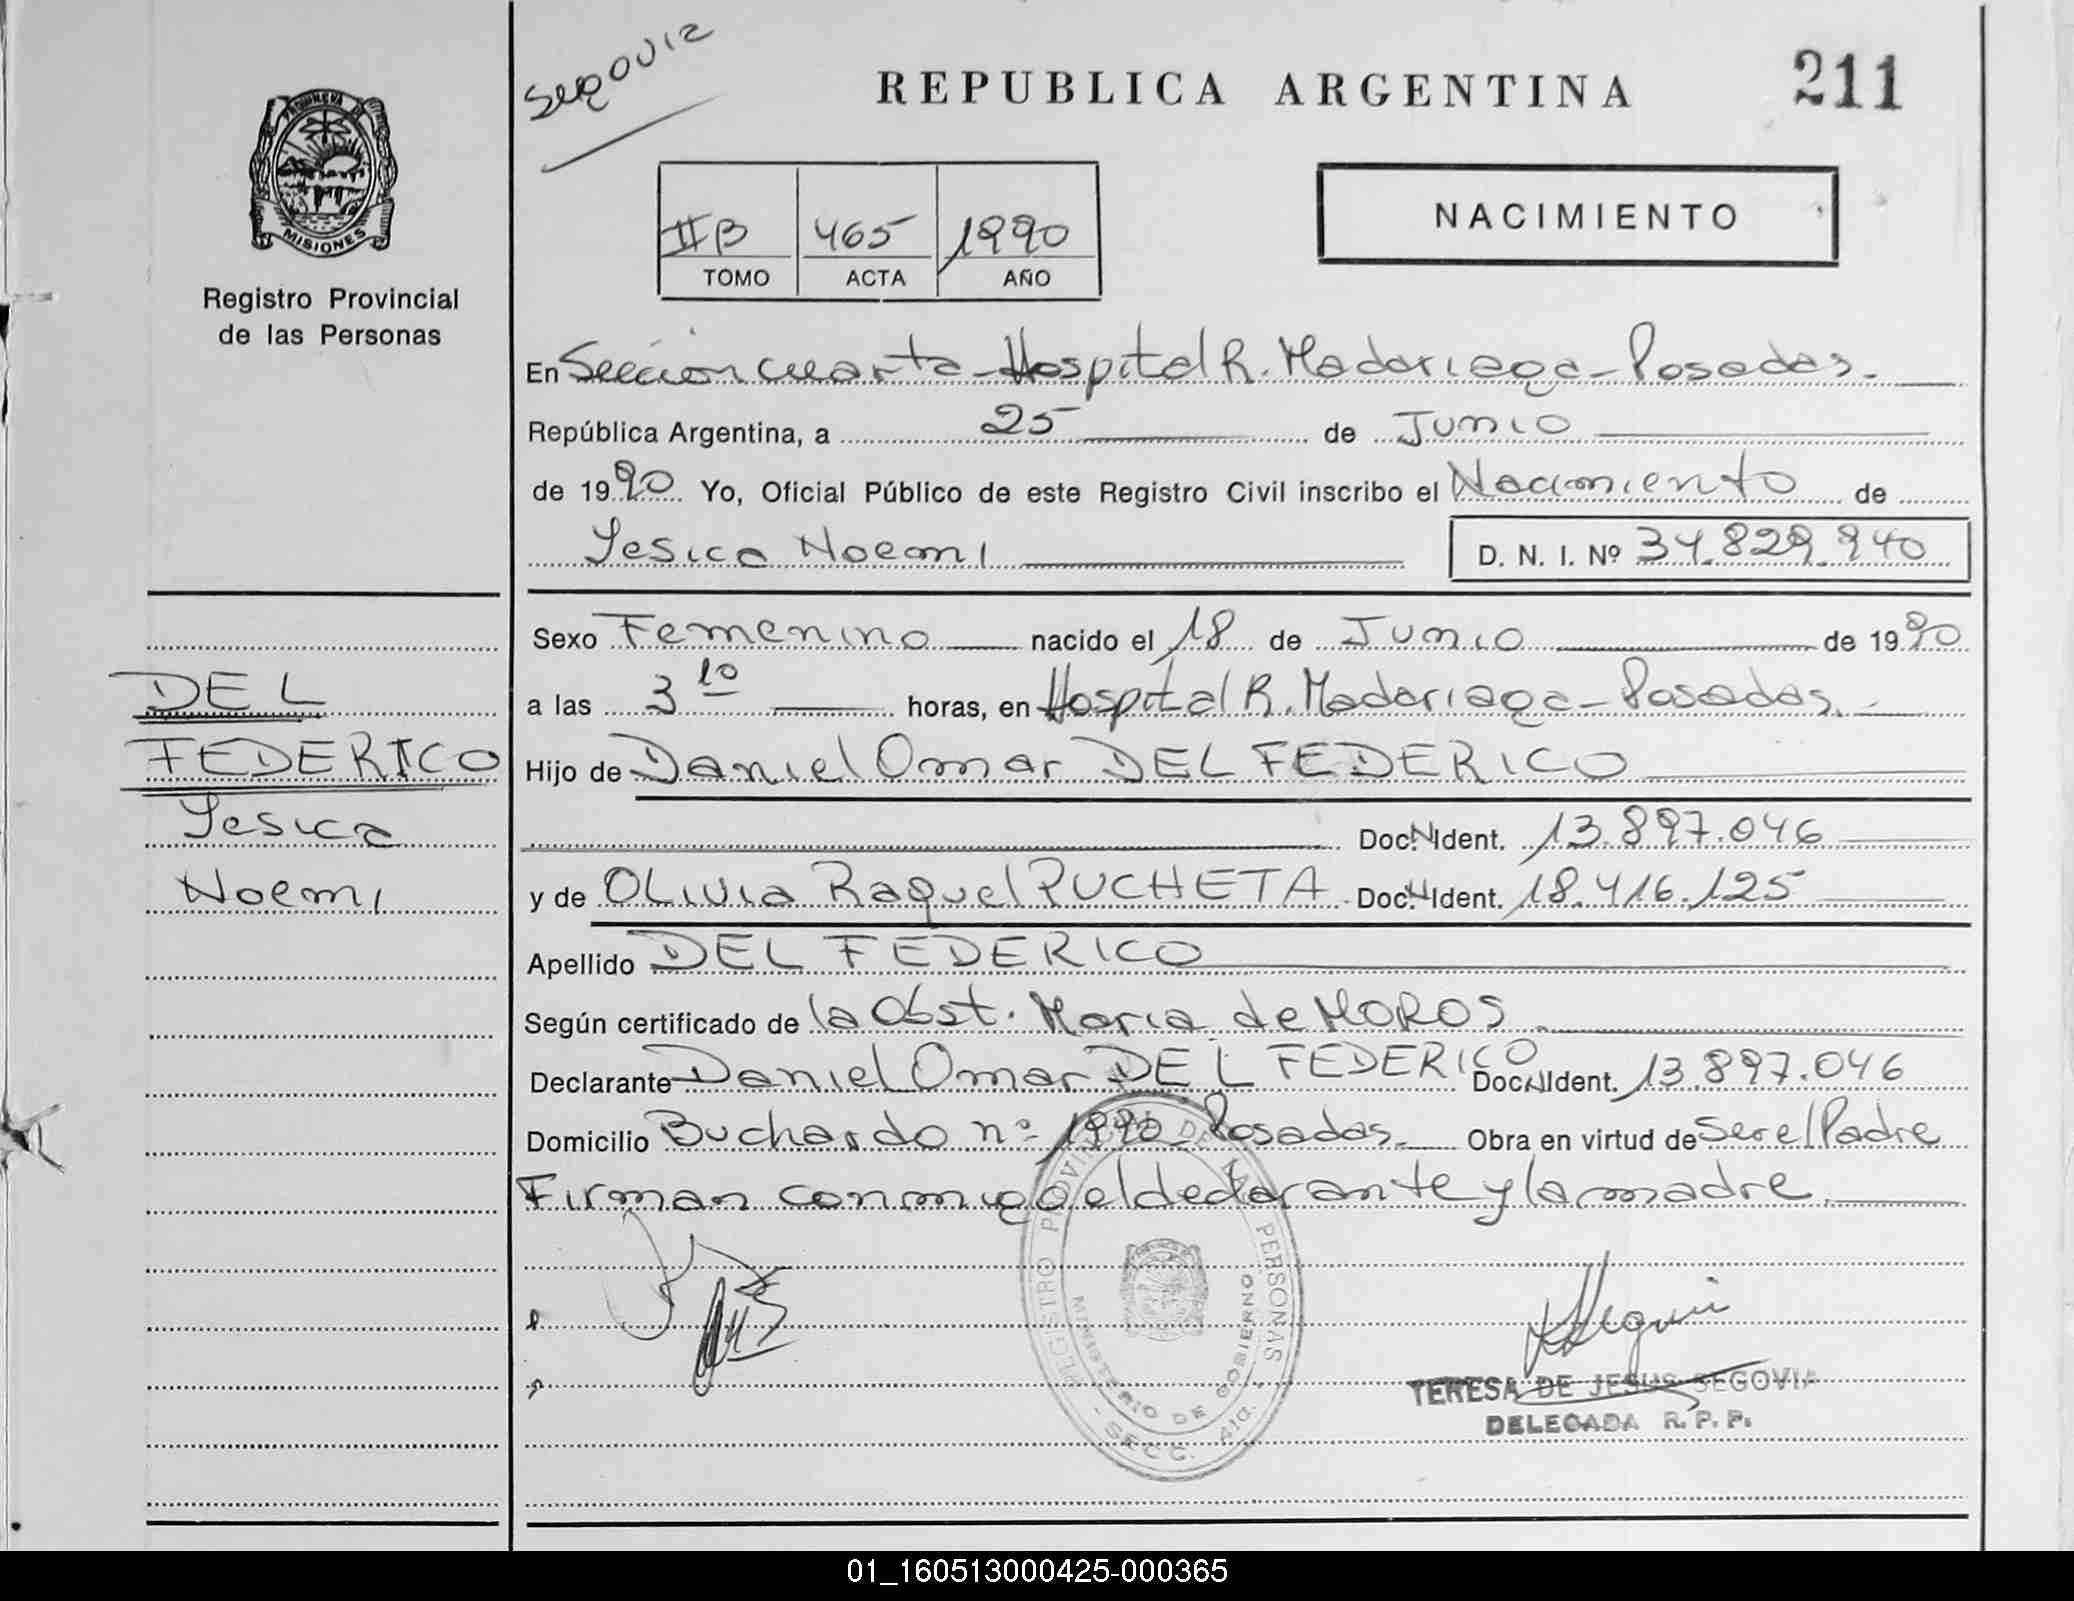 Segovia
REPUBLICA ARGENTINA
211
MISIONES
Registro Provincial
de las Personas
II B 465 1990
TOMO ACTA AÑO
NACIMIENTO
En Sección cuarta - Hospital R. Madariaga - Posadas.
República Argentina, a 25 de Junio
de 1990 Yo, Oficial Público de este Registro Civil inscribo el Nacimiento de
Yesica Noemi D. N. I. Nº 34.829.940
Sexo Femenino nacido el 18 de Junio de 1990
a las 3 10 horas, en Hospital R. Madariaga - Posadas.
Hijo de Daniel Omar DEL FEDERICO
Doc. N Ident. 13.897.046
y de OLivia Raquel PUCHETA Doc. N Ident. 18.416.125
Apellido DEL FEDERICO
Según certificado de la Obst. Maria de MOROS
Declarante Daniel Omar DEL FEDERICO Doc. N Ident. 13.897.046
Domicilio Buchardo nº 1990 - Posadas. Obra en virtud de Ser el Padre
Firman conmigo el declarante y la madre.
DEL
FEDERICO
Yesica
Noemi
REGISTRO PROVINCIAL DE LAS PERSONAS
MINISTERIO DE GOBIERNO
TERESA DE JESUS SEGOVIA
DELEGADA R. P. P.
01_160513000425-000365